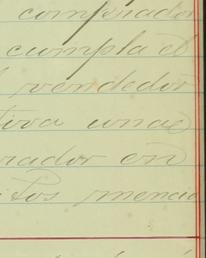 comprador
cumpla el
vendedor
tiva una
rador en
los menci